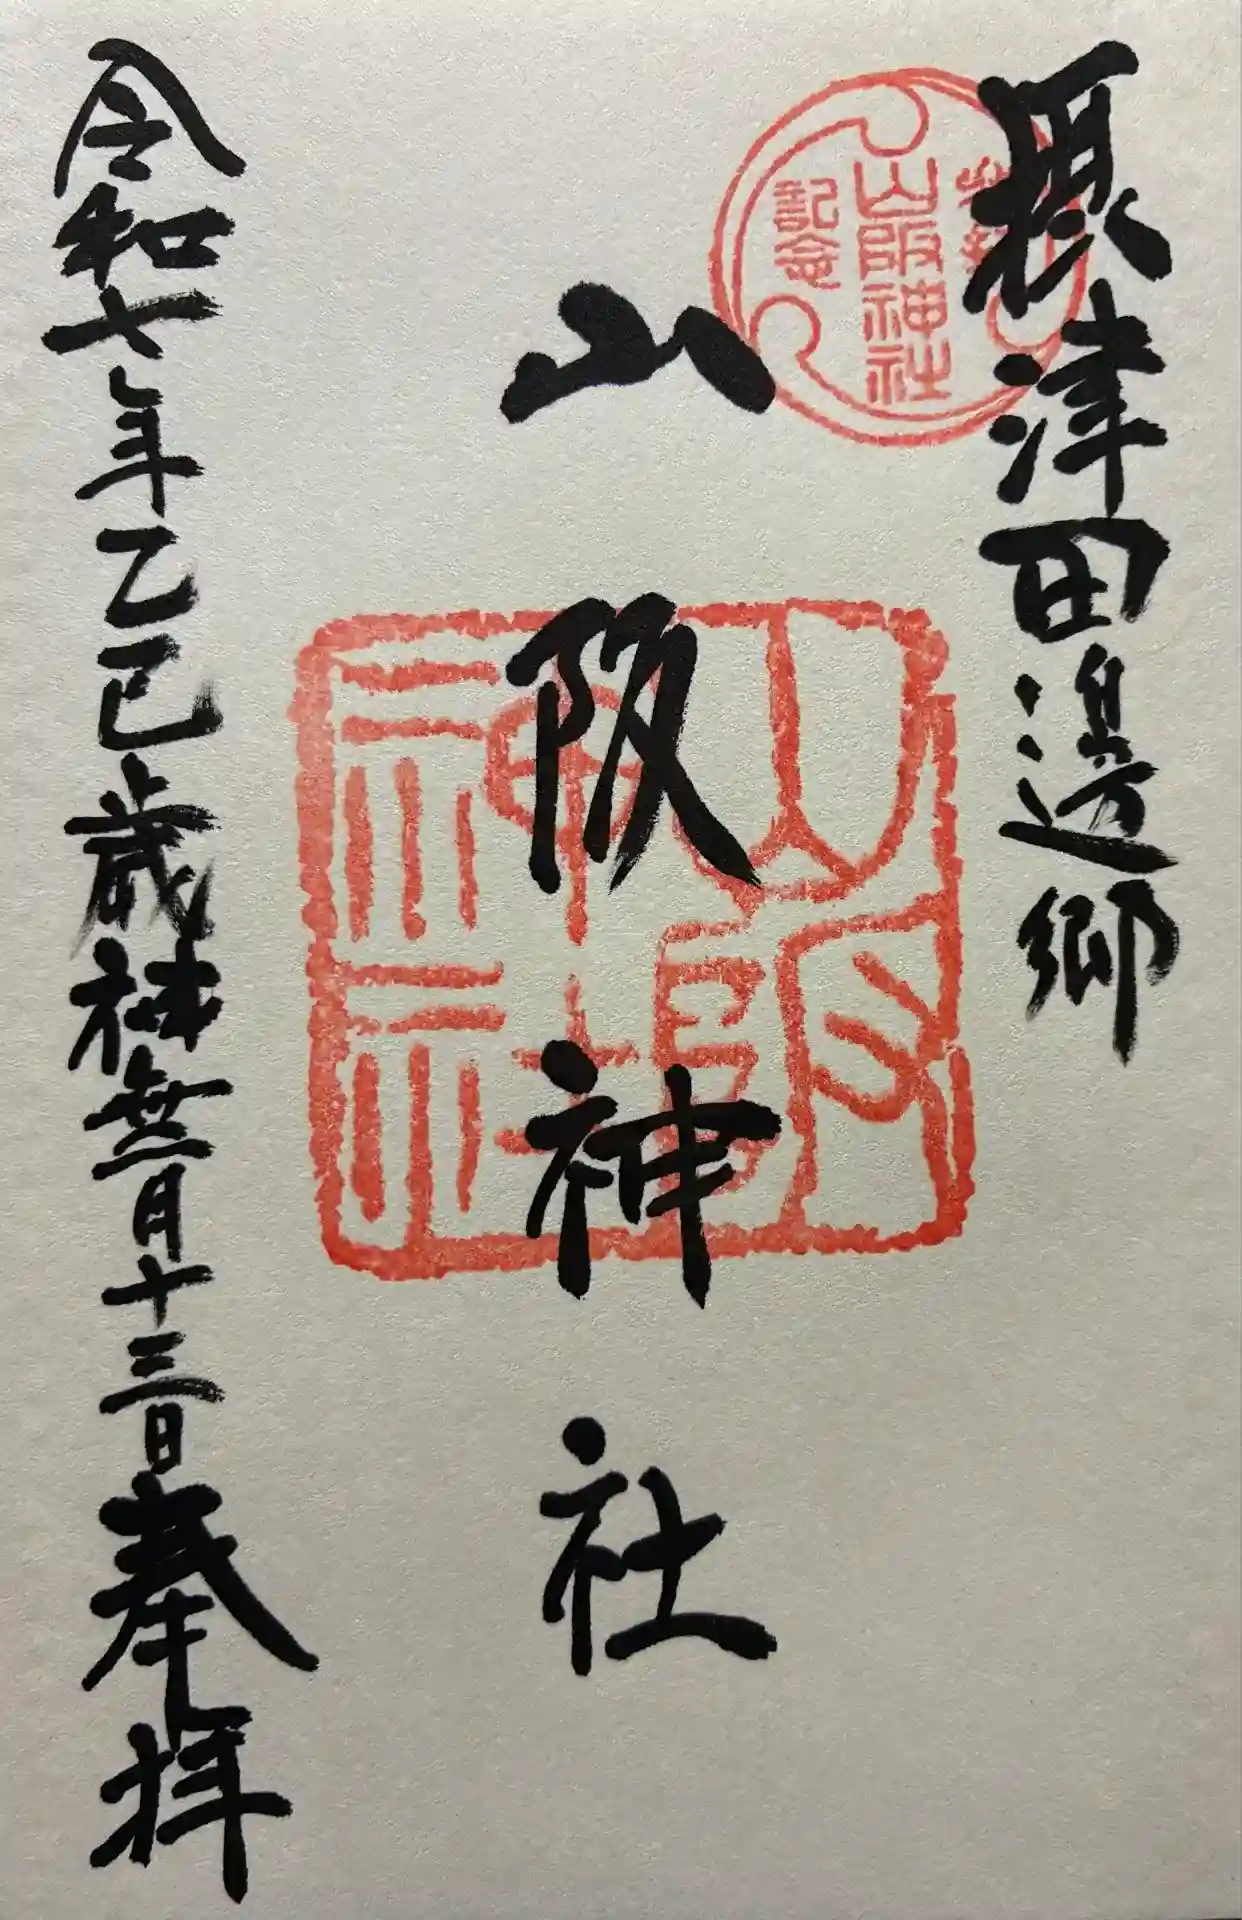 摂津田邊郷
山阪神社
記念
山阪神社
山阪
神社
令和七年乙巳歳神無月十三日奉拝